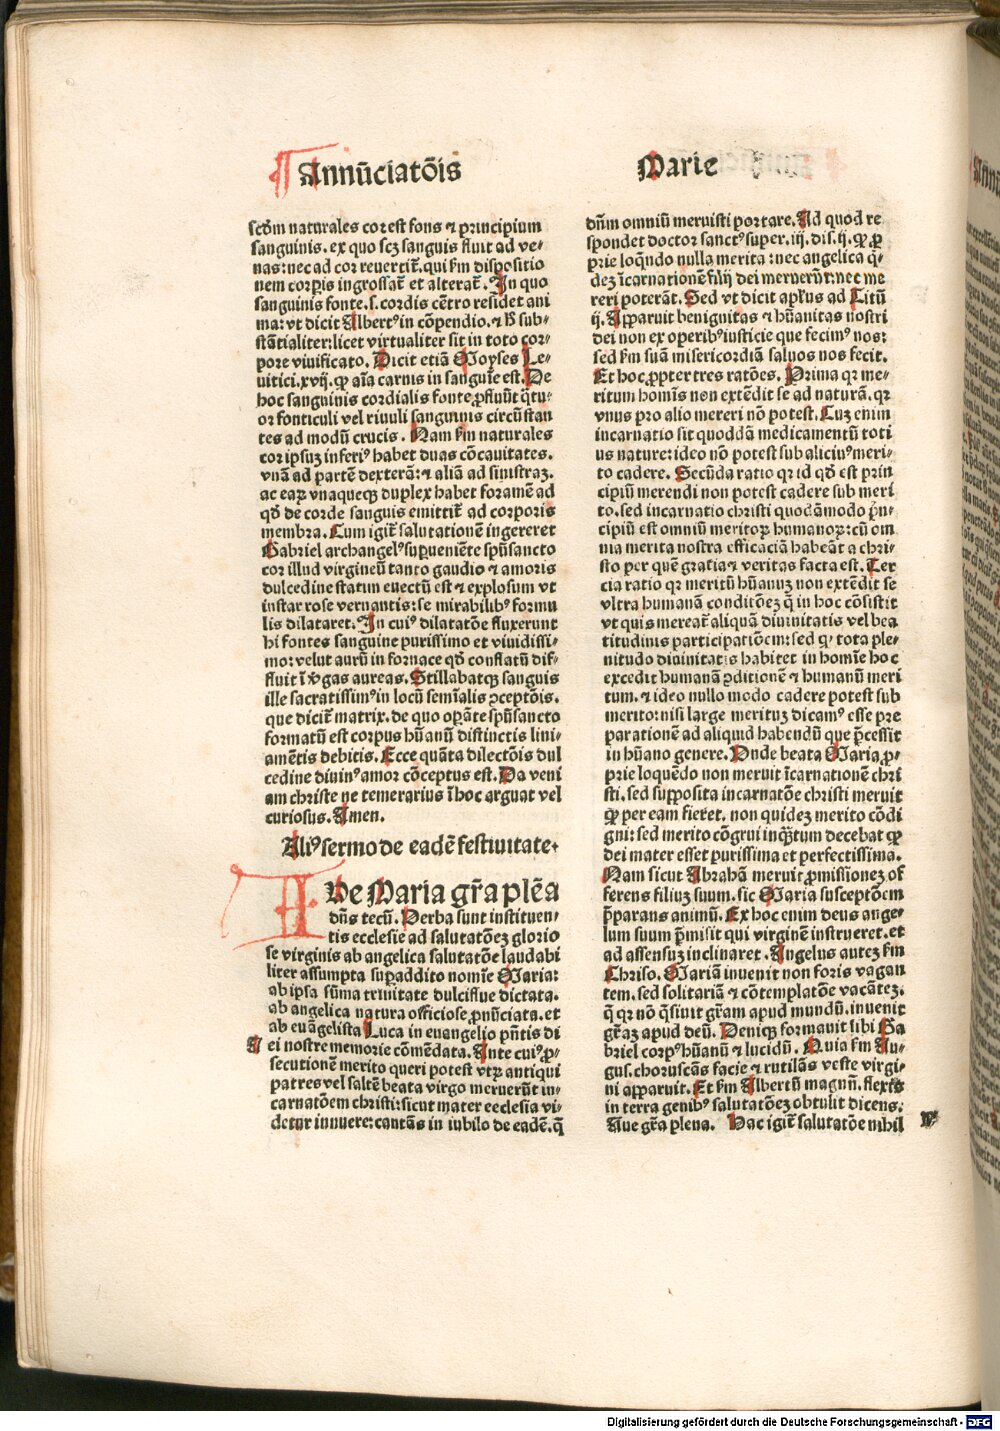 Annūciatōis Marie
scd̄m naturales cor est fons ⁊ principium
sanguinis. ex quo scꝫ sanguis fluit ad ve-
nas: nec ad cor reuertit̄. qui ẜm dispositio
nem corꝑis ingrossat̄ et alterat̄. In quo
sanguinis fonte .s. cordis cētro residet ani
ma: vt dicit Albertꝰ in cōpendio. ⁊ hͦ sub-
stātialiter: licet virtualiter sit in toto cor-
pore viuificato. Dicit etiā Moyses Le-
uitici .xvij. ꝙ aīa carnis in sanguīe est. De
hoc sanguinis cordialis fonte ꝓfluūt q̄tu-
or fonticuli vel riuuli sanguinis circūstan
tes ad modū crucis. Nam ẜm naturales
cor ipsuꝫ inferiꝰ habet duas cōcauitates.
vnā ad partē dexterā: ⁊ aliā ad sinistraꝫ.
ac eaꝝ vnaqueqꝫ duplex habet foramē ad
qd̄ de corde sanguis emittit̄ ad corporis
membra. Cum igit̄ salutationē ingereret
Gabriel archangelꝰ suꝑueniēte spūsancto
cor illud virgineū tanto gaudio ⁊ amoris
dulcedine statim euectū est ⁊ explosum vt
instar rose vernantis: se mirabilibꝰ formu
lis dilataret. In cuiꝰ dilatatōe fluxerunt
hi fontes sanguine purissimo et viuidissi-
mo: velut aurū in fornace qd̄ conflatū dif-
fluit ī v̄gas aureas. Stillabatqꝫ sanguis
ille sacratissimꝰ in locū semīalis ꝯceptōis.
que dicit̄ matrix. de quo oꝑāte spūsancto
formatū est corpus hūanū distinctis lini-
amētis debitis. Ecce quāta dilectōis dul
cedine diuinꝰ amor cōceptus est. Da veni
am christe ne temerarius ī hoc arguat vel
curiosus. Amen.
Aliꝰ sermo de eadē festiuitate.
AUe Maria gr̄a plēa
dn̄s tecū. Verba sunt instituen-
tis ecclesie ad salutatōeꝫ glorio
se virginis ab angelica salutatōe laudabi
liter assumpta suꝑaddito nomīe Maria:
ab ipsa sūma trinitate dulciflue dictata.
ab angelica natura officiose ꝓnūciata. et
ab euāgelista Luca in euangelio pn̄tis di
A ei nostre memorie cōmēdata. Ante cuiꝰ ꝓ-
secutionē merito queri potest vtꝝ antiqui
patres vel saltē beata virgo meruerūt in-
carnatōem christi: sicut mater ecclesia vi-
detur innuere: cantās in iubilo de eadē. q̄
dn̄m omniū meruisti portare. Ad quod re
spondet doctor sanctꝰ super .iij. dis. ij. ꝙ ꝓ
prie loq̄ndo nulla merita: nec angelica q̄-
deꝫ īcarnationē filij dei meruerūt: nec me
reri poterāt. Sed vt dicit apl̄us ad Titū
ij. Apparuit benignitas ⁊ hūanitas nostri
dei non ex operibꝰ iusticie que fecimꝰ nos:
sed ẜm suā misericordiā saluos nos fecit.
Et hoc ꝓpter tres ratōes. Prima qꝛ me-
ritum homīs non extēdit se ad naturā. qꝛ
vnus pro alio mereri nō potest. Cuꝫ enim
incarnatio sit quoddā medicamentū toti
us nature: ideo nō potest sub aliciuꝰ meri-
to cadere. Secūda ratio qꝛ id qd̄ est prin
cipiū merendi non potest cadere sub meri
to. sed incarnatio christi quodāmodo pri̅n-
cipiū est omniū meritoꝝ humanoꝝ: cū om
nia merita nostra efficaciā habeāt a chri-
sto per quē gratia ⁊ veritas facta est. Ter
cia ratio qꝛ meritū hūanuꝫ non extēdit se
vltra humanā conditōeꝫ q̄ in hoc cōsistit
vt quis mereat̄ aliquā diuinitatis vel bea
titudinis participatiōem: sed qꝛ tota ple-
nitudo diuinitatis habitet in homīe hoc
excedit humanā ꝯditionē ⁊ humanū meri
tum. ⁊ ideo nullo modo cadere potest sub
merito: nisi large merituꝫ dicamꝰ esse pre
parationē ad aliquid habendū que p̄cessit
in hūano genere. Unde beata Maria ꝓ-
prie loquēdo non meruit īcarnationē chri
sti. sed supposita incarnatōe christi meruit
ꝙ per eam fieret. non quideꝫ merito cōdi
gni: sed merito cōgrui inꝙtum decebat ꝙ
dei mater esset purissima et perfectissima.
Nam sicut Abrahā meruit ꝓmissioneꝫ of
ferens filiuꝫ suum. sic Maria susceptōem
p̄parans animū. Ex hoc enim deus ange-
lum suum p̄misit qui virginē instrueret. et
ad assensuꝫ inclinaret. Angelus auteꝫ ẜm
Chriso. Mariā inuenit non foris vagan
tem. sed solitariā ⁊ cōtemplatōe vacāteꝫ.
q̄ qꝛ nō q̄siuit gr̄am apud mundū. inuenit
gr̄aꝫ apud deū. Deniqꝫ formauit sibi Ga
briel corpꝰ hūanū ⁊ lucidū. Quia ẜm Au-
gus. choruscās facie ⁊ rutilās veste virgi-
ni apparuit. Et ẜm Albertū magnū. flexis
in terra genibꝰ salutatōeꝫ obtulit dicens.
Aue gr̄a plena. Hac igit̄ salutatōe nihil
Digitalisierung gefördert durch die Deutsche Forschungsgemeinschaft - DFG